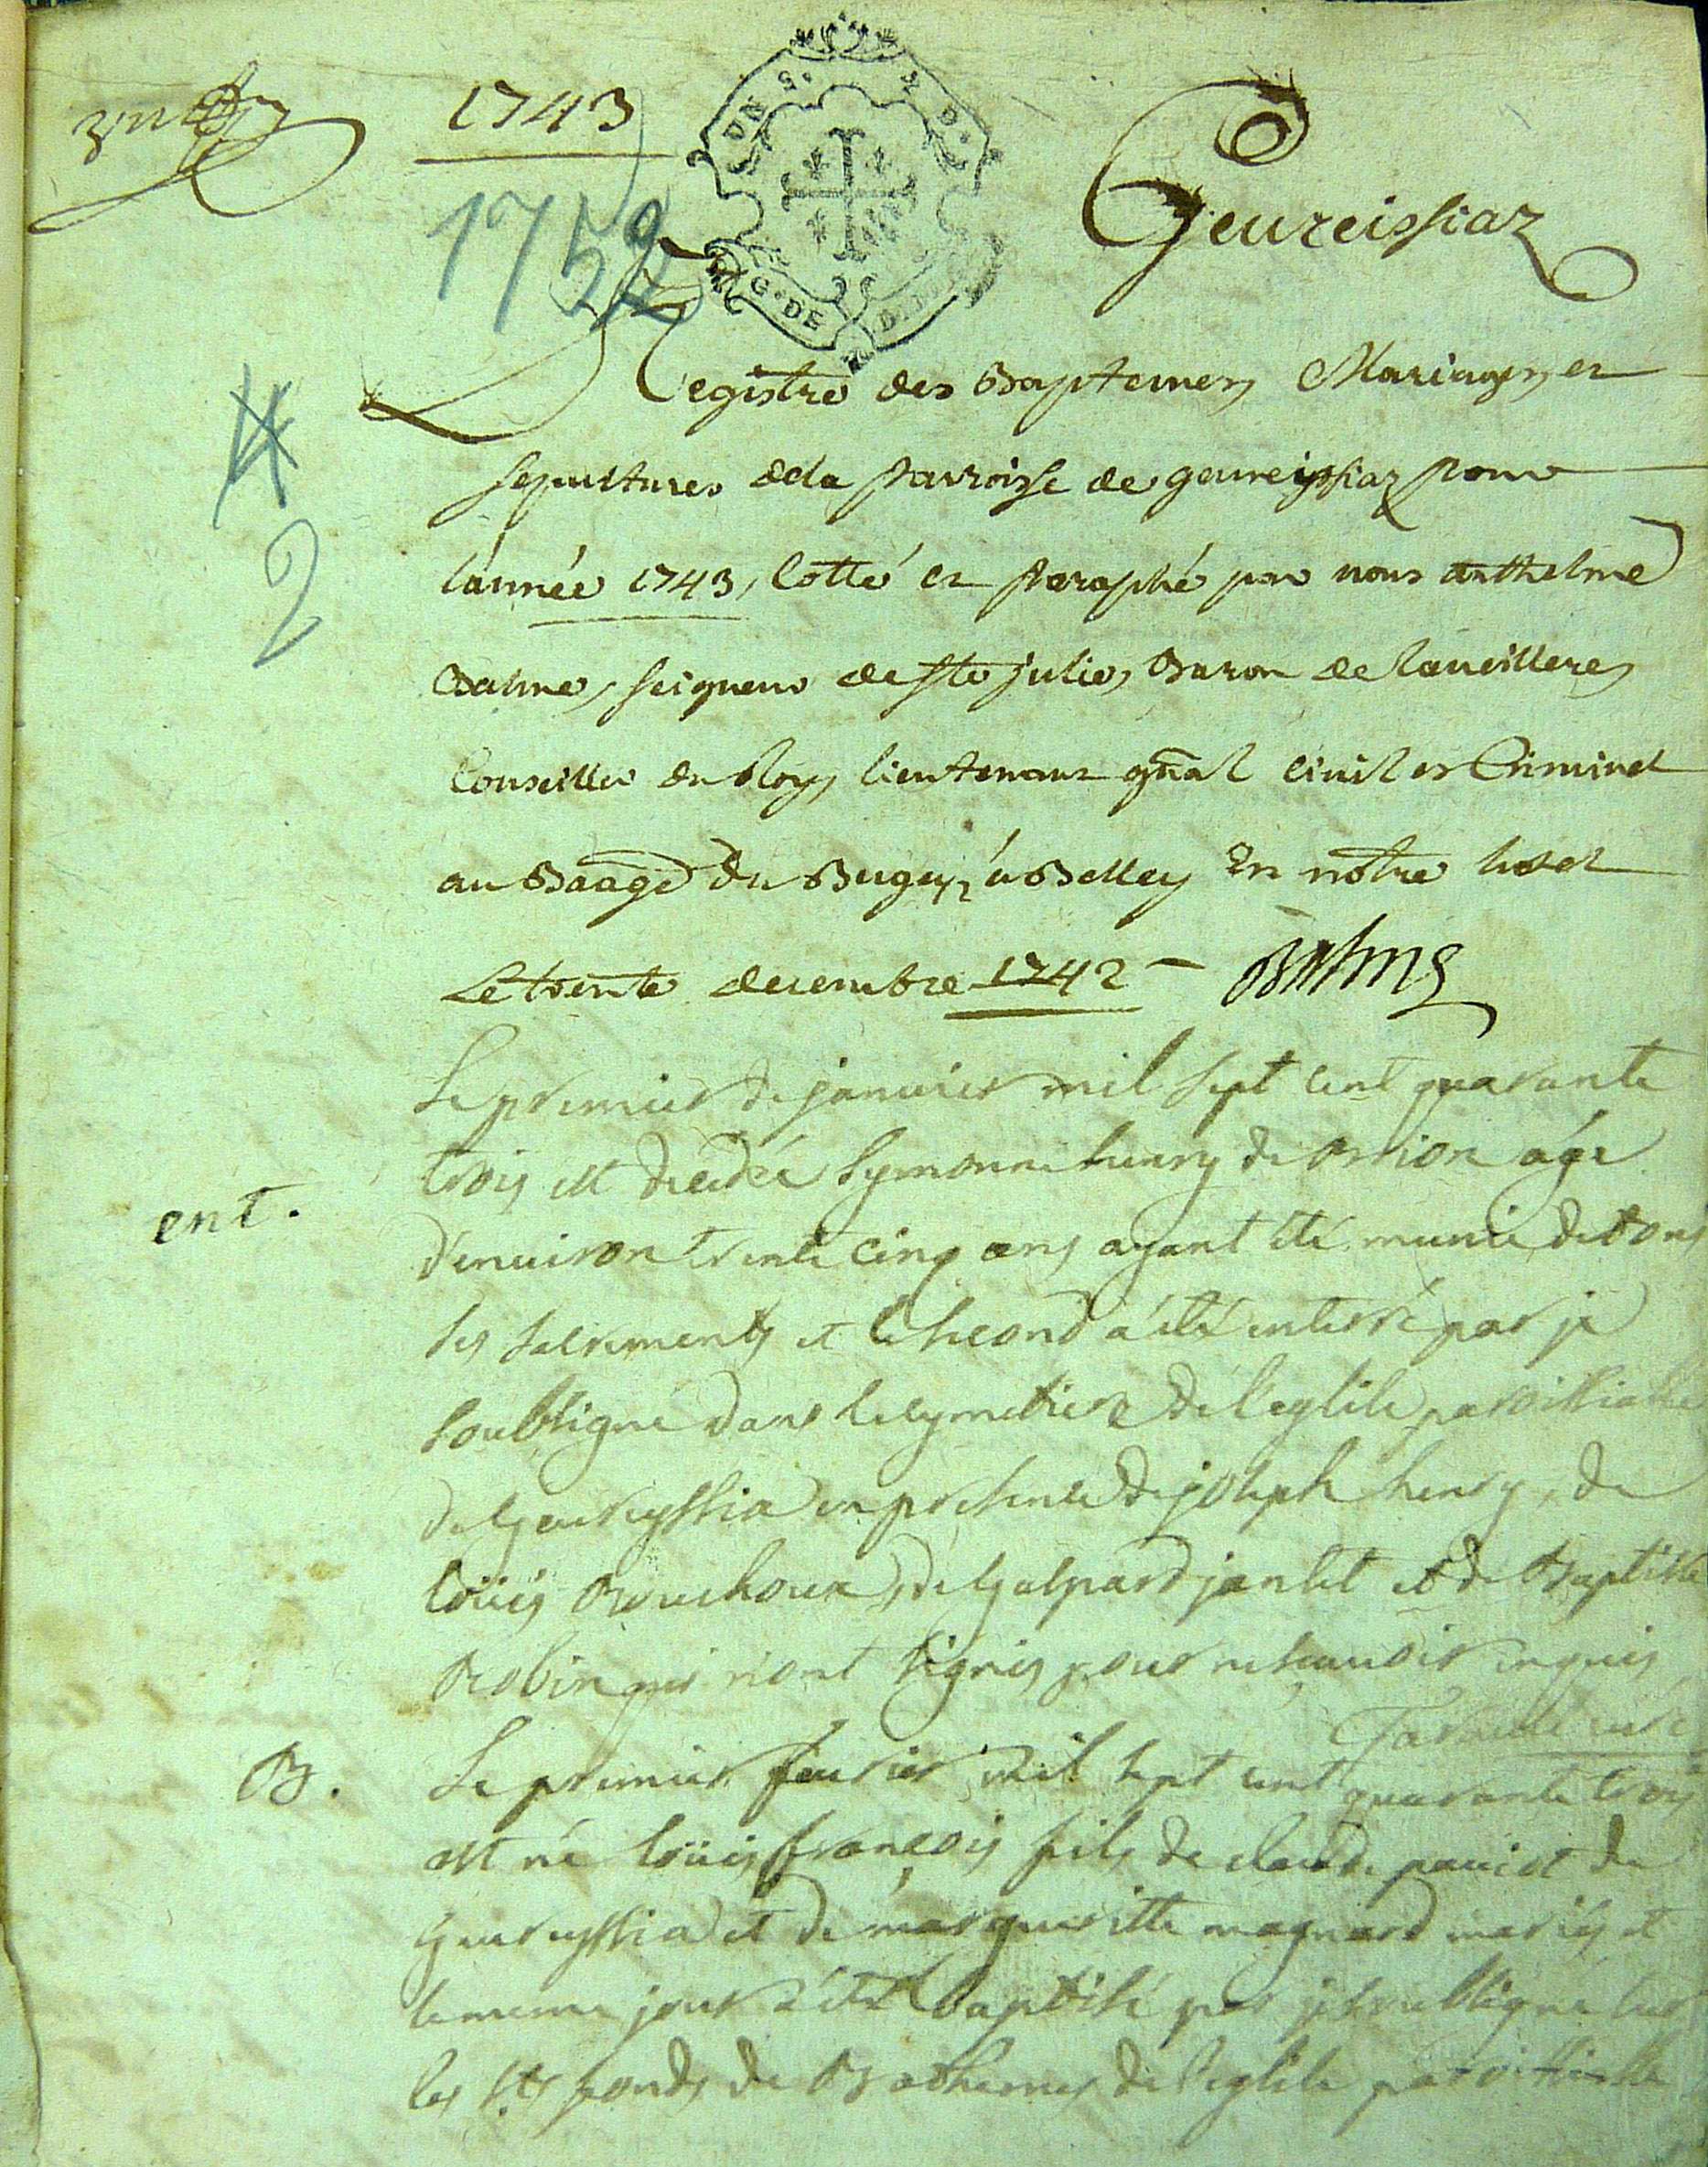 1743
1752
UN S. 2 D.
G. DE
Geureissiaz
4
2
Registre des Baptemes Mariages et
sepultures dela parroisse de geureissiaz pour
l'année 1743, Cotté et paraphé par nous anthelme
Balme, seigneur de Ste julie, Baron de
Conseiller du Roy, lieutenant gñal civil et Criminel
au Baage du Bugey, à Belley En notre hotel
Le trente decembre 1742 - Balme
Le premier de janvier mil sept cent quarante
ent.
trois est decedée Symonne henry de age
d'environ trente cinq ans ayant été munie de tous
ses sacrements et le second a été enterré par je
soussigné dans le cymetiere de l'eglise paroissialle
de Geureyssia en presence de joseph henry, de
loüis Bouchoux, de Gaspard jantet et de Baptiste
Robin qui n'ont signés pour ne sçauoir enquis
curé
B.
Le premier feurier mil sept cent quarante trois
est né loüis françois fils de claude paviot de
Geureyssia et de margueritte magnard mariés et
le meme jour a été baptisé par je soussigné sur
les sts fonds de Bathemes de l'eglise paroissialle